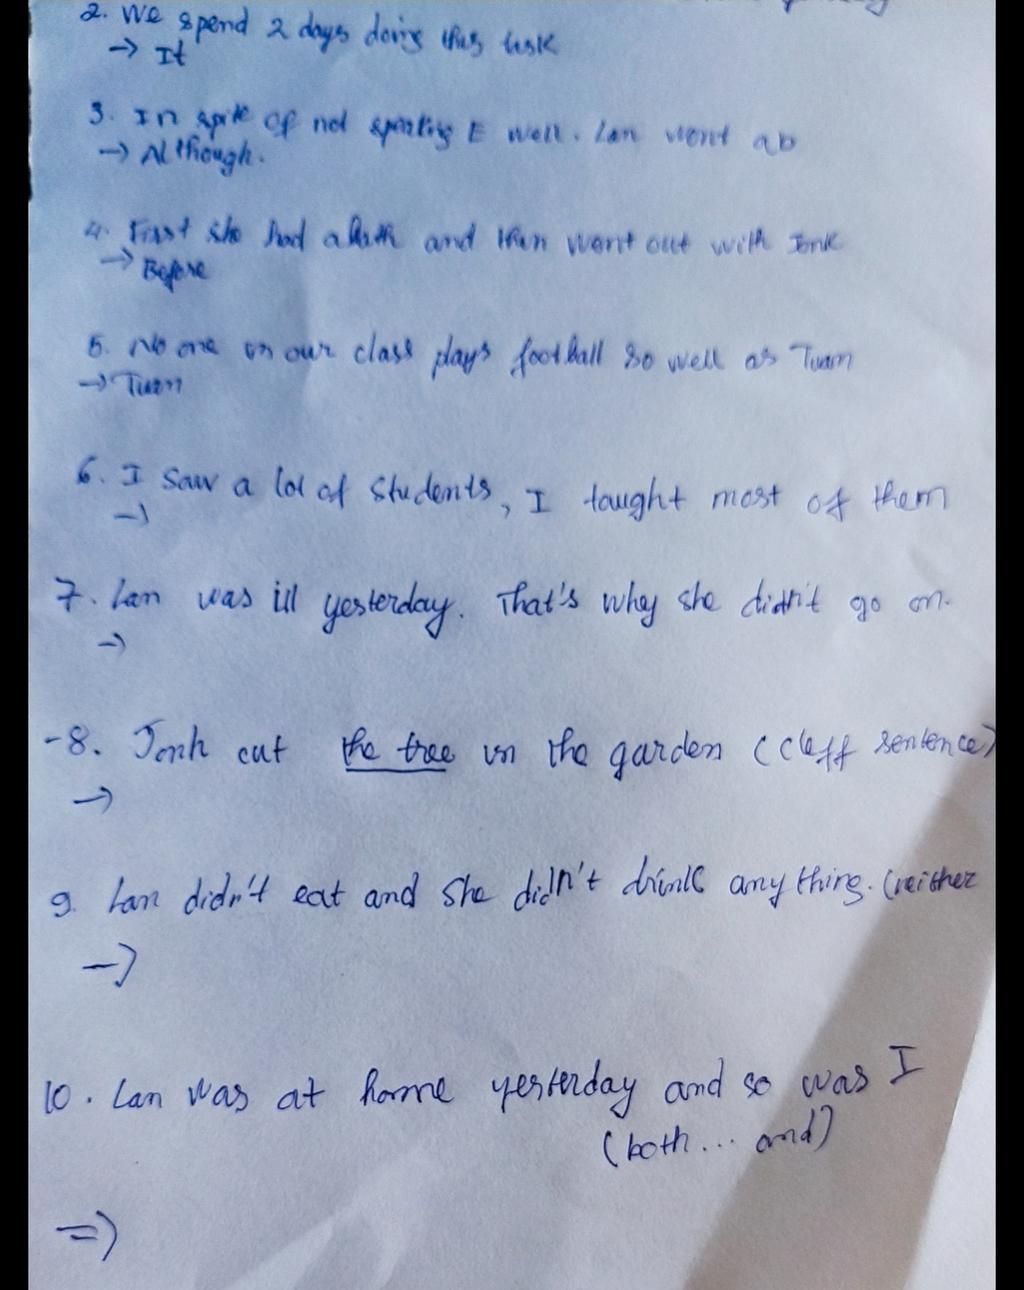 2. We spend 2 days doing this task
→ It
3. In spite of not speaking E well. Lan went ab
→ Although.
4. First she had a bath and then went out with Jonk
→ Before
5. No one in our class plays football so well as Tuan
→ Tuan
6. I saw a lot of students, I taught most of them
→
7. Lan was ill yesterday. That's why she didn't go on.
→
-8. Jonh cut the tree in the garden (cleff sentence)
→
9. Lan didn't eat and she didn't drink anything. (neither
→
10. Lan was at home yesterday and so was I
(both... and)
=>